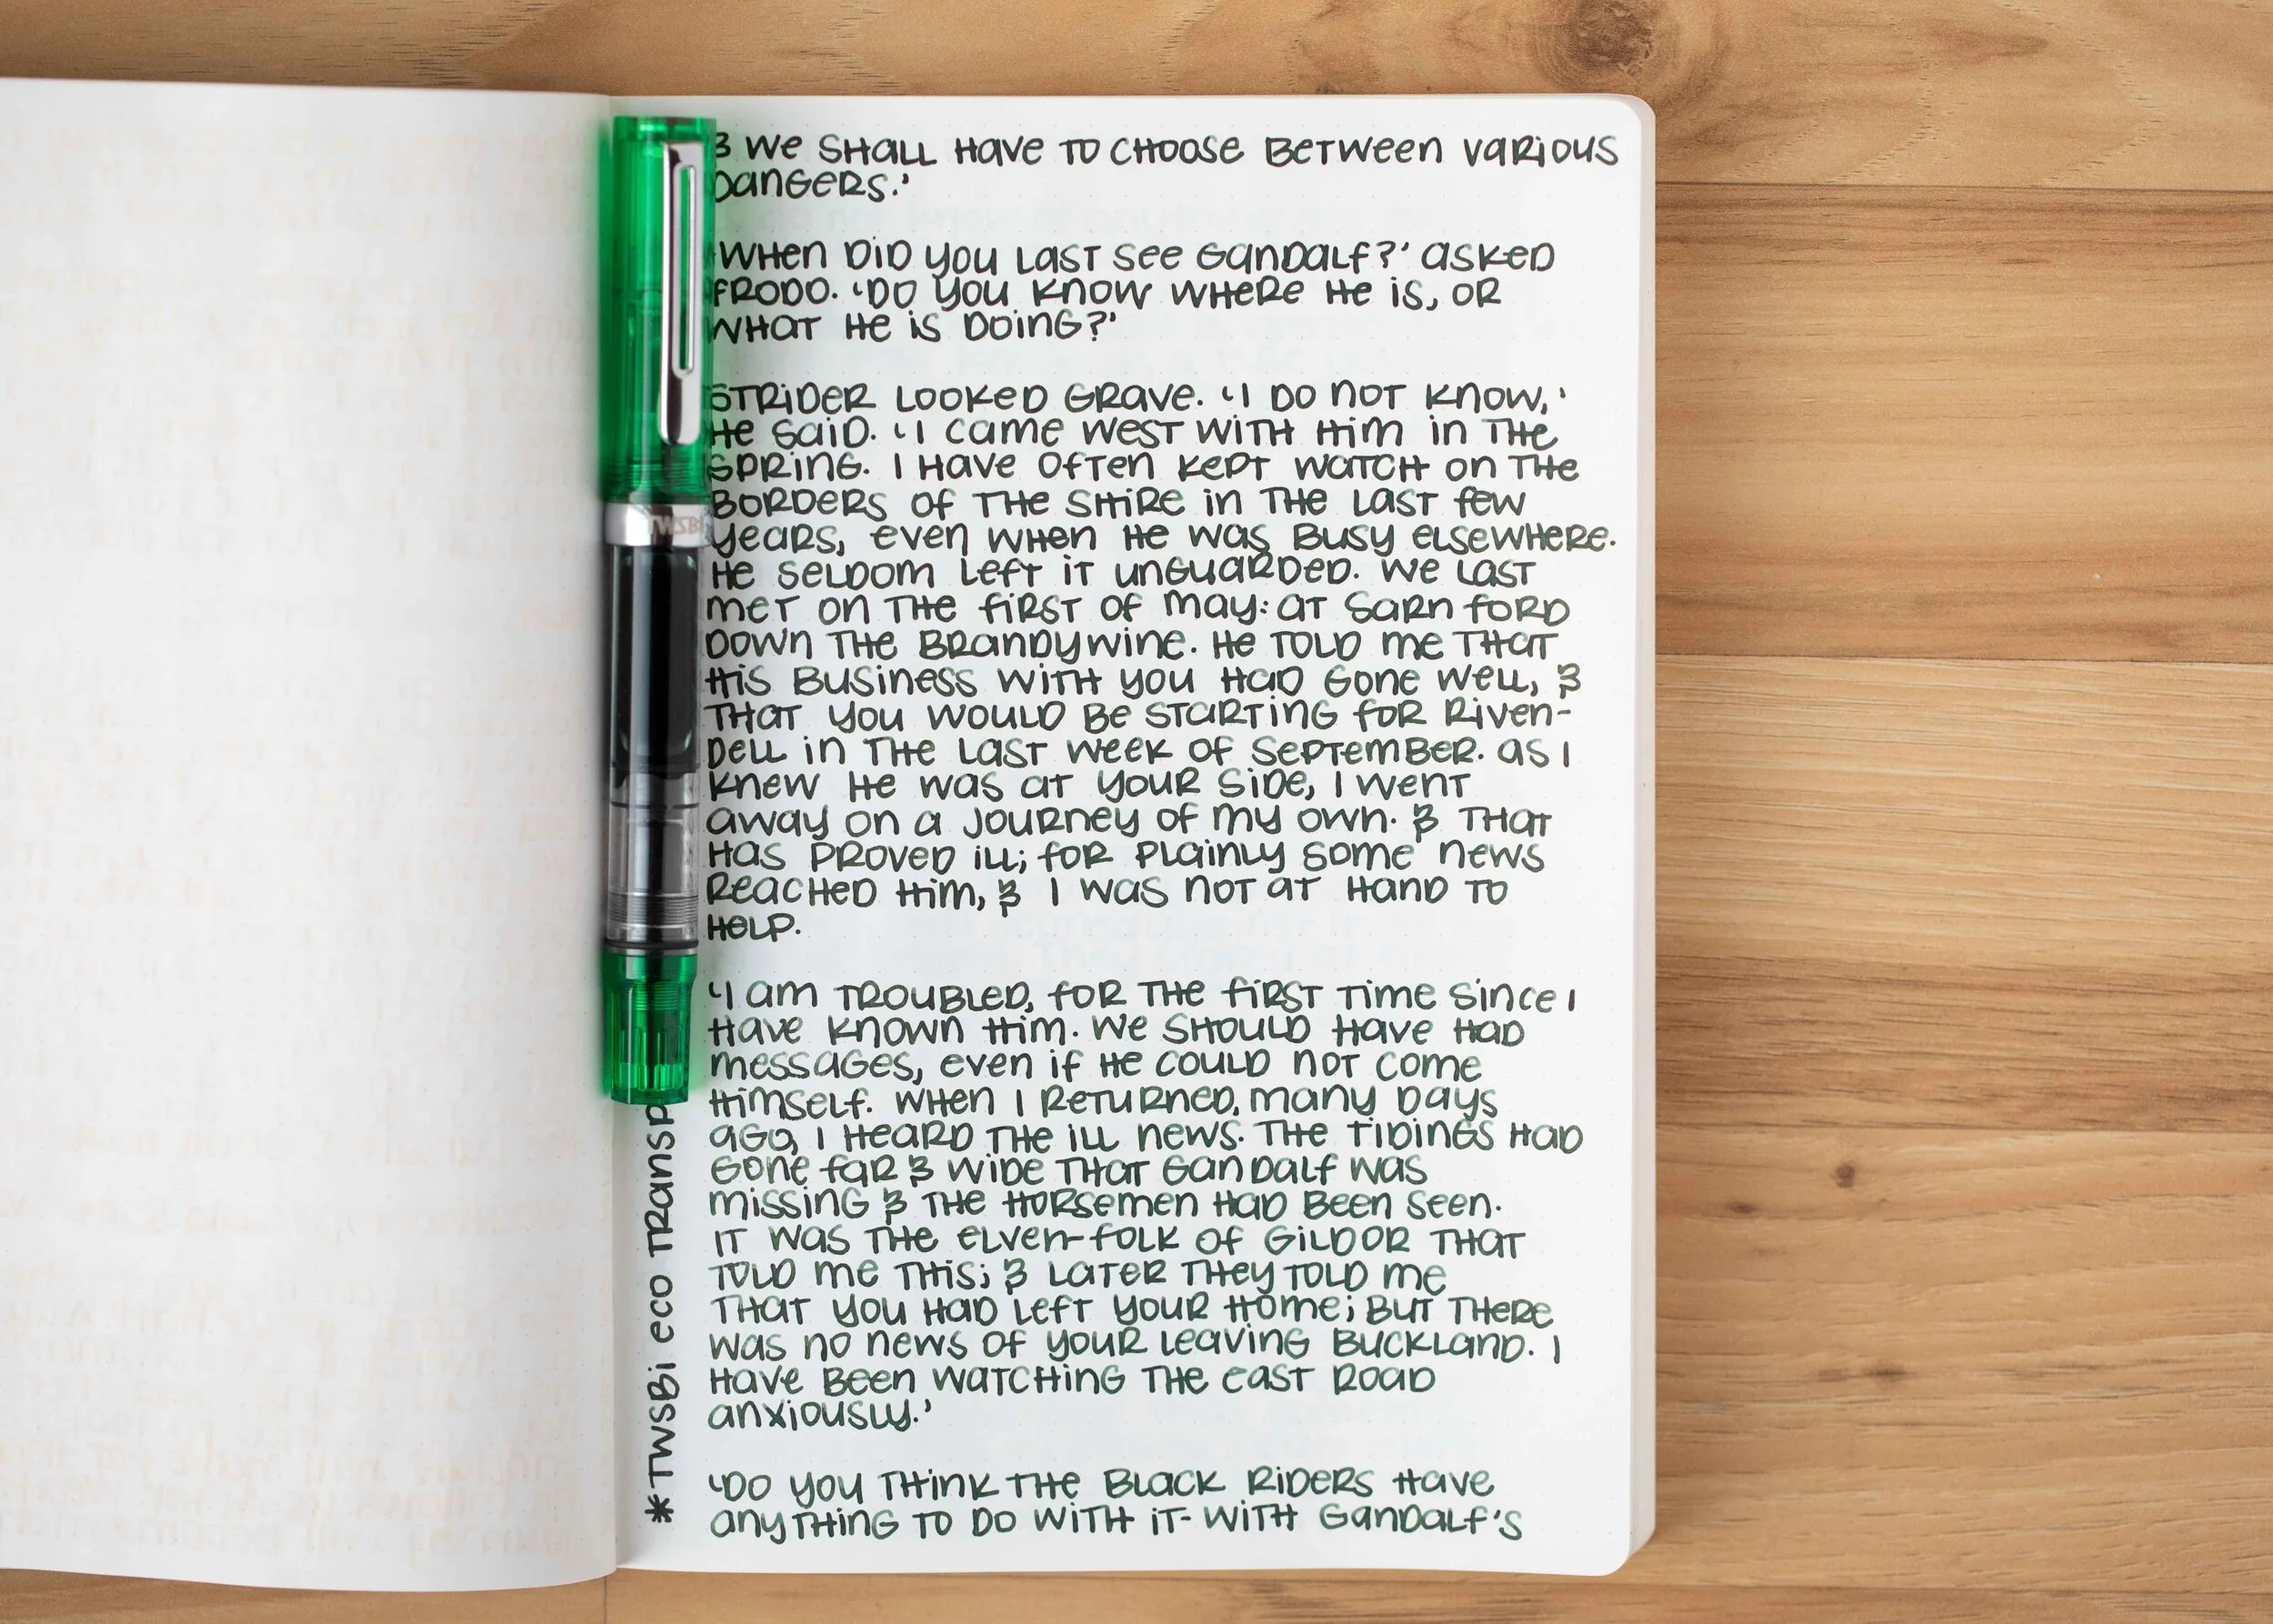 & we shall have to choose between various
dangers.'
'When did you last see Gandalf?' asked
Frodo. 'Do you know where he is, or
what he is doing?'
Strider looked grave. 'I do not know,'
he said. 'I came west with him in the
spring. I have often kept watch on the
borders of the Shire in the last few
years, even when he was busy elsewhere.
He seldom left it unguarded. We last
met on the first of May: at Sarn Ford
down the Brandywine. He told me that
his business with you had gone well, &
that you would be starting for Riven-
dell in the last week of September. As I
knew he was at your side, I went
away on a journey of my own. & that
has proved ill; for plainly some news
reached him, & I was not at hand to
help.
'I am troubled, for the first time since I
have known him. We should have had
messages, even if he could not come
himself. When I returned, many days
ago, I heard the ill news. The tidings had
gone far & wide that Gandalf was
missing & the horsemen had been seen.
It was the Elven-folk of Gildor that
told me this; & later they told me
that you had left your home; but there
was no news of your leaving Buckland. I
have been watching the East Road
anxiously.'
'Do you think the Black Riders have
anything to do with it - with Gandalf's
*TWSBI eco Transp
TWSBI